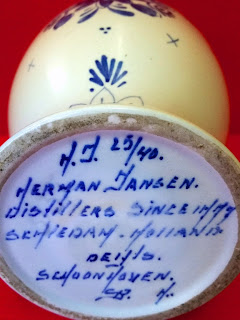 H.J. 25/40.
HERMAN JANSEN.
DISTILLERS SINCE 1777
SCHIEDAM. HOLLAND
DELFTS.
SCHOONHOVEN.